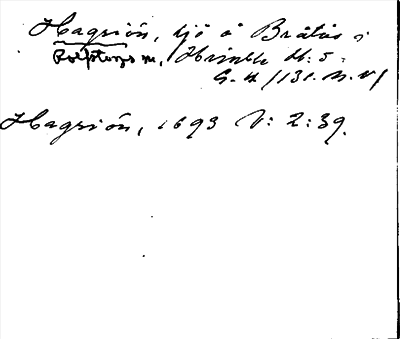 Hagsiön, sjö å Bråtås i
Rolfstorps sn, Himble H: S.
G. K /131. N. V/
Hagsiön, 1693 V: 2:39.